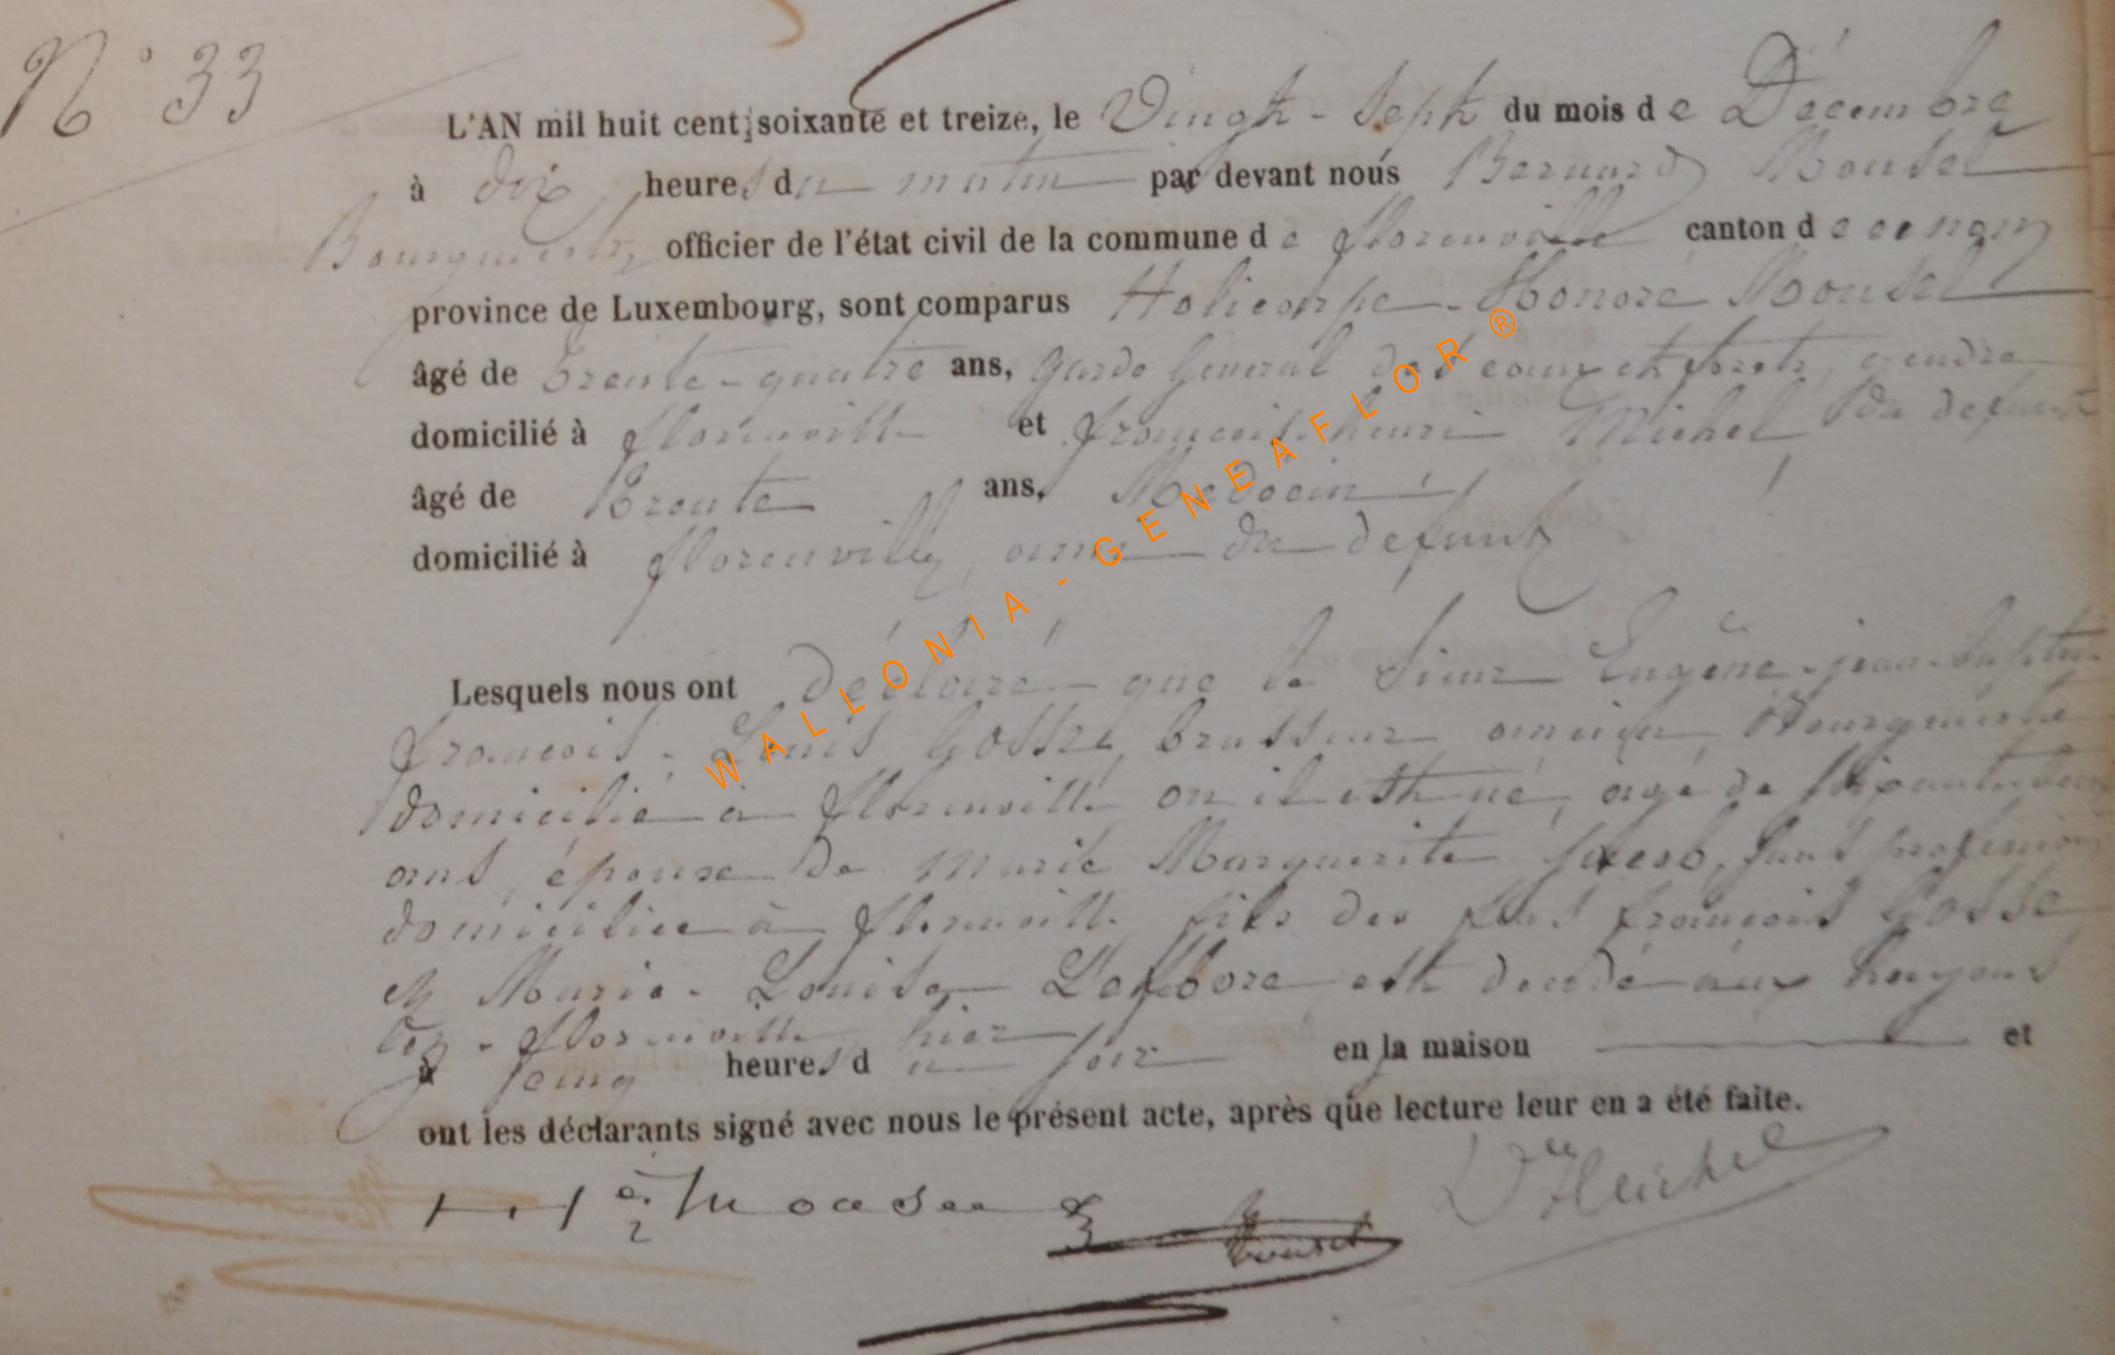 N° 33
L'AN mil huit cent soixante et treize, le Vingt-Sept du mois de Décembre
à dix heures du matin par devant nous Bernard Mousel
Bourgmestre officier de l'état civil de la commune de florenville canton de ce nom
province de Luxembourg, sont comparus Honoré Mousel
âgé de trente-quatre ans, Garde Général des eaux et forets, gendre
domicilié à florenville et françois-henri Michel du defunt
âgé de Trente ans, Medecin
domicilié à florenville, ami du defunt
Lesquels nous ont déclaré que le Sieur Eugène-jean-baptiste
françois-Louis Gosse, brasseur ancien Bourgmestre
domicilié à florenville où il est né, agé de
ans, époux de Marie Marguerite sans profession
domiciliée à florenville fils des feus françois Gosse
et Marie-Louise Lefebvre est decedé aux hayons
lez-florenville hier
à cinq heures du soir en la maison et
ont les déclarants signé avec nous le présent acte, après que lecture leur en a été faite.
Mousel
WALLONIA-GENEAFLOR®